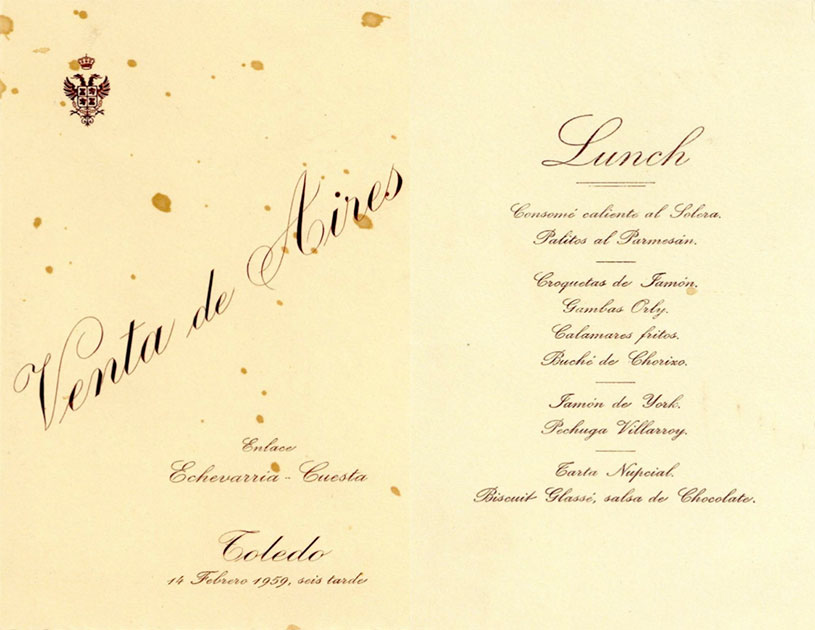 Venta de Aires
Enlace
Echevarría - Cuesta
Toledo
14 Febrero 1959, seis tarde
Lunch
Consomé caliente al Solera.
Palitos al Parmesán.
Croquetas de Jamón.
Gambas Orly.
Calamares fritos.
Buché de Chorizo.
Jamón de York.
Pechuga Villarroy.
Tarta Nupcial.
Biscuit Glassé, salsa de Chocolate.